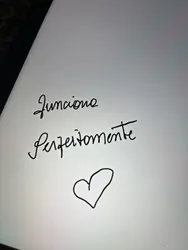 Funciona
Perfeitamente